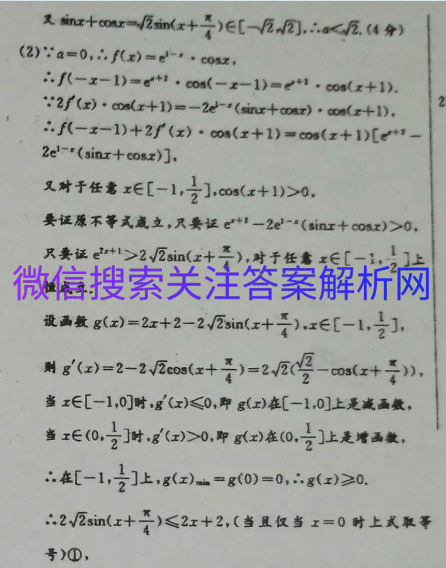 又 sinx+cosx=√2sin(x+π/4)∈[-√2,√2],∴a<√2.(4分)
(2)∵a=0,∴f(x)=e^{1-x}·cosx,
∴f(-x-1)=e^{x+2}·cos(-x-1)=e^{x+2}·cos(x+1).
∵2f′(x)·cos(x+1)=-2e^{1-x}(sinx+cosx)·cos(x+1),
2
∴f(-x-1)+2f′(x)·cos(x+1)=cos(x+1)[e^{x+2}-
2e^{1-x}(sinx+cosx)],
又对于任意 x∈[-1,1/2],cos(x+1)>0,
要证原不等式成立,只要证 e^{x+2}-2e^{1-x}(sinx+cosx)>0,
只要证 e^{2x+1}>2√2sin(x+π/4),对于任意 x∈[-1,1/2]上
微信搜索关注答案解析网
恒成立.
设函数 g(x)=2x+2-2√2sin(x+π/4),x∈[-1,1/2],
则 g′(x)=2-2√2cos(x+π/4)=2√2(√2/2-cos(x+π/4)),
当 x∈[-1,0]时,g′(x)≤0,即 g(x)在[-1,0]上是减函数,
当 x∈(0,1/2]时,g′(x)>0,即 g(x)在(0,1/2]上是增函数,
∴在[-1,1/2]上,g(x)_{min}=g(0)=0,∴g(x)≥0.
∴2√2sin(x+π/4)≤2x+2,(当且仅当 x=0 时上式取等
号)①,